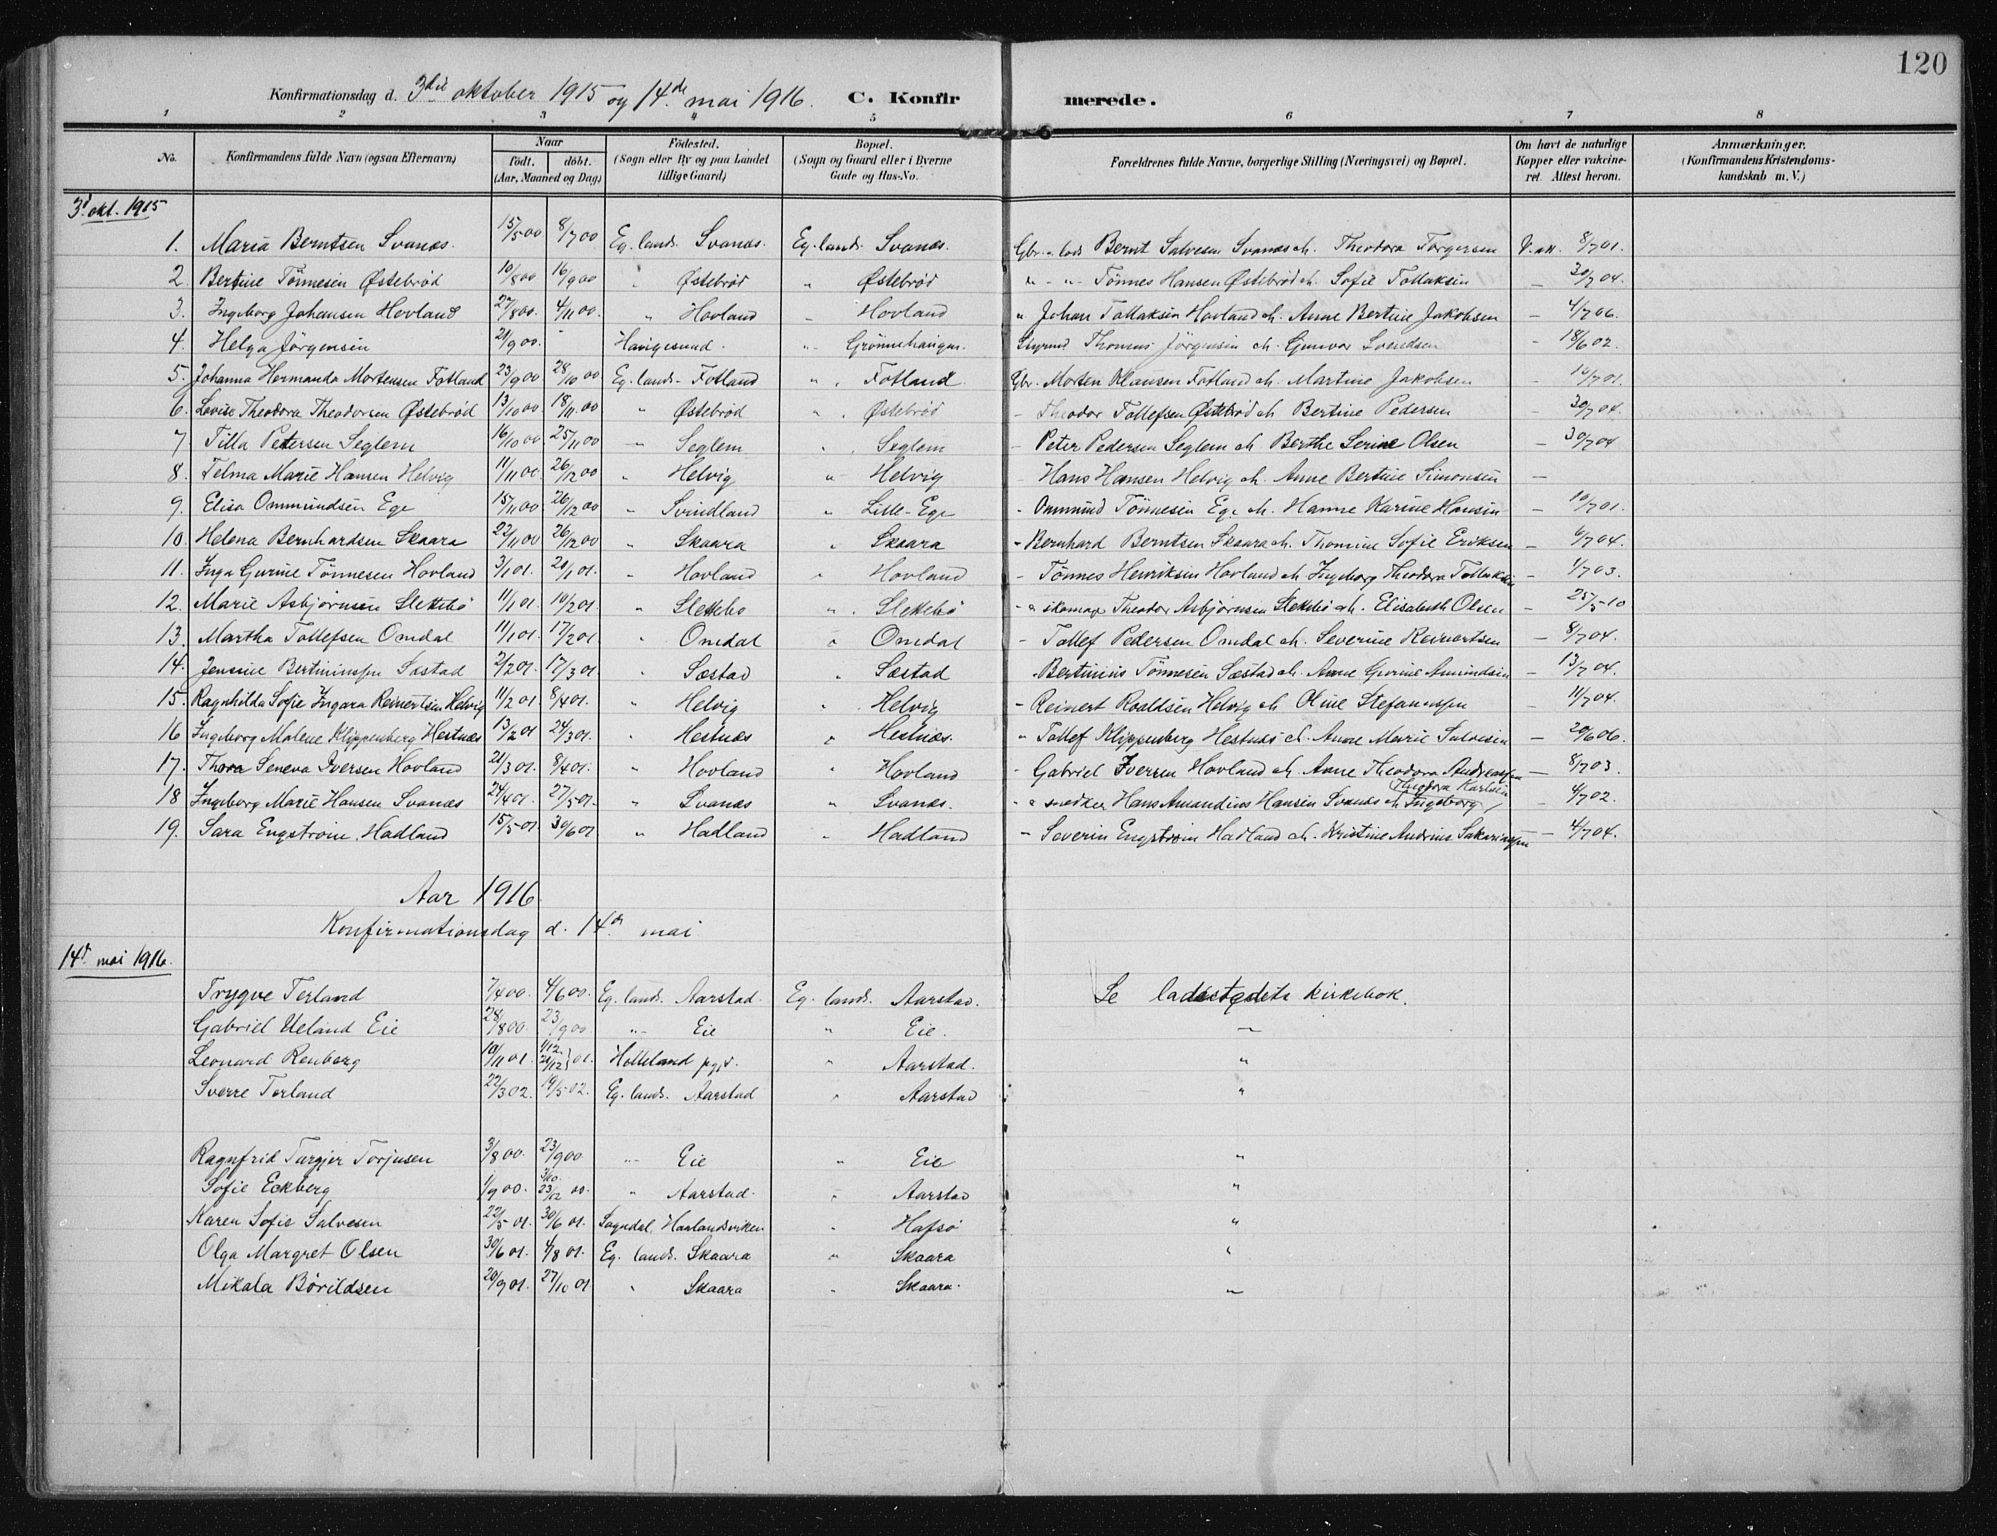 120
Konfirmationsdag d. 3die oktober 1915 og 14de mai 1916. C. Konfirmerede.
1 2 3 4 5 6 7 8
No. Konfirmandens fulde Navn (ogsaa Efternavn) Naar født, døbt. (Aar, Maaned og Dag) Fødested. (Sogn eller By og paa Landet tillige Gaard) Bopæl. (Sogn og Gaard eller i Byerne Gade og Hus-No. Forældrenes fulde Navne, borgerlige Stilling (Næringsvei) og Bopæl. Om havt de naturlige Kopper eller vakcineret. Attest herom. Anmærkninger. (Konfirmandens Kristendomskundskab m. V.)
3d okt. 1915
1. Maria Berntsen Svanæs. 15/5 00 8/7 00 Eg. lands. Svanæs. Eg. lands. Svanæs. Gbr. Bernt Salvesen Svanæs og h. Theodora Torgersen V. att. 8/7 01.
2. Bertine Tönnesen Østebrød 10/8 00 16/9 00 " Østebrød " Østebrød " - " - Tönnes Hansen Østebrød o h. Sofie Tollaksen — 30/7 04.
3. Ingeborg Johansen Hovland 27/8 00 4/11 00. " Hovland " Hovland " Johan Tollaksen Hovland o h. Anne Bertine Jakobsen — 4/7 06.
4. Helga Jörgensen 21/9 00. - Haugesund. " Grønnehaugen. Styrmd Thomas Jörgensen o h. Gunvor Svendsen — 18/6 02.
5. Johanna Hermanda Mortensen Fotland 23/9 00 28/10 00 Eg. lands - Fotland " Fotland. Gbr. Morten Klausen Fotland o h. Martine Jakobsen — 10/7 01.
6. Lovise Theodora Theodorsen Østebrød 13/10 00 18/11 00. " Østebrød " Østebrød - Theodor Tollefsen Østebrød o h Bertine Pedersen — 30/7 04.
7. Tilla Petersen Seglem 16/10 00 25/11 00 " Seglem " Seglem - Peter Pedersen Seglem o h Berthe Serine Olsen — 30/7 04
8. Telma Marie Hansen Helvig 11/11 00. 26/12 00 " Helvig " Helvig - Hans Hansen Helvig o h. Anne Bertine Simonsen —
9. Elisa Ommundsen Ege 15/11 00 26/12 00 " Svindland " Lille-Ege - Ommund Tönnesen Ege o h. Hanne Karine Hansen — 10/7 01.
10. Helena Bernhardsen Skaara 22/11 00 26/12 00 " Skaara " Skaara - Bernhard Berntsen Skaara o h. Thomine Sofie Eriksen — 6/7 04.
11. Inga Gurine Tönnesen Hovland 3/1 01. 20/1 01. " Hovland " Hovland - Tönnes Henriksen Hovland o h. Ingeborg Theodora Tollaksen — 1/7 03.
12. Marie Asbjörnsen Slettebö 11/1 01. 10/2 01. " Slettebo " Slettebö - o skomag Theodor Asbjörnsen Slettebö o h. Elisabeth Olsen — 25/5 10
13. Martha Tollefsen Omdal 11/1 01. 17/2 01. " Omdal " Omdal - Tollef Pedersen Omdal o h. Severine Reinertsen — 8/7 04.
14. Jensine Bertiniussen Sæstad 2/2 01. 17/3 01 " Sæstad " Sæstad - Bertinius Tönnesen Sæstad o h. Anne Gurine Amundsen — 13/7 04.
15. Ragnhilda Sofie Ingara Reinertsen Helvig 11/2 01. 8/4 01. " Helvig " Helvig - Reinert Roaldsen Helvig o h Oline Stefanussen — 11/7 04.
16 Ingeborg Malene Klippenberg Hestnæs 13/2 01 24/3 01. " Hestnæs " Hestnæs. " Tollef Klippenberg Hestnæs o h. Anne Marie Salvesen — 20/6 06.
17. Thora Seneva Iversen Hovland 21/3 01. 8/4 01. " Hovland " Hovland - Gabriel Iversen Hovland o h. Anne Theodora Andreassen — 8/7 03.
18 Ingeborg Marie Hansen Svanæs 24/4 01. 27/5 01. " Svanæs " Svanæs. - o snedker Hans Amandius Hansen Svanæs o h Ingeborg Theodora Karlsen — 4/7 02.
19. Sara Engström, Hadland 15/5 01. 30/6 01 " Hadland " Hadland - Severin Engström Hadland o h. Kristine Andrine Sakariassen — 4/7 04.
Aar 1916
Konfirmationsdag d. 14de mai
14d mai 1916.
Trygve Terland 7/4 00. 4/6 00. Eg. lands. Aarstad. Eg. lands. Aarstad. Se ladestedets kirkebok.
Gabriel Ueland Eie 28/8 00. 23/9 00. " Eie " Eie. "
Leonard Renberg 10/11 01. 1/12 26/12 } 01. Helleland pgjd. " Aarstad. "
Sverre Terland 22/3 02. 19/5 02. Eg. lands. Aarstad " Aarstad "
Ragnfrid Turgjer Torjusen 3/8 00. 23/9 00. " Eie " Eie "
Sofie Eckberg 1/9 00. 3/10. 23/12 00. " Aarstad. " Aarstad "
Karen Sofie Salvesen 22/5 01. 30/6 01. Sogndal, Haalandsviken " Hafsö "
Olga Margret Olsen 30/6 01. 4/8 01. Eg. lands. Skaara " Skaara "
Mikala Börildsen 20/9 01. 27/10 01. " Skaara " Skaara. "